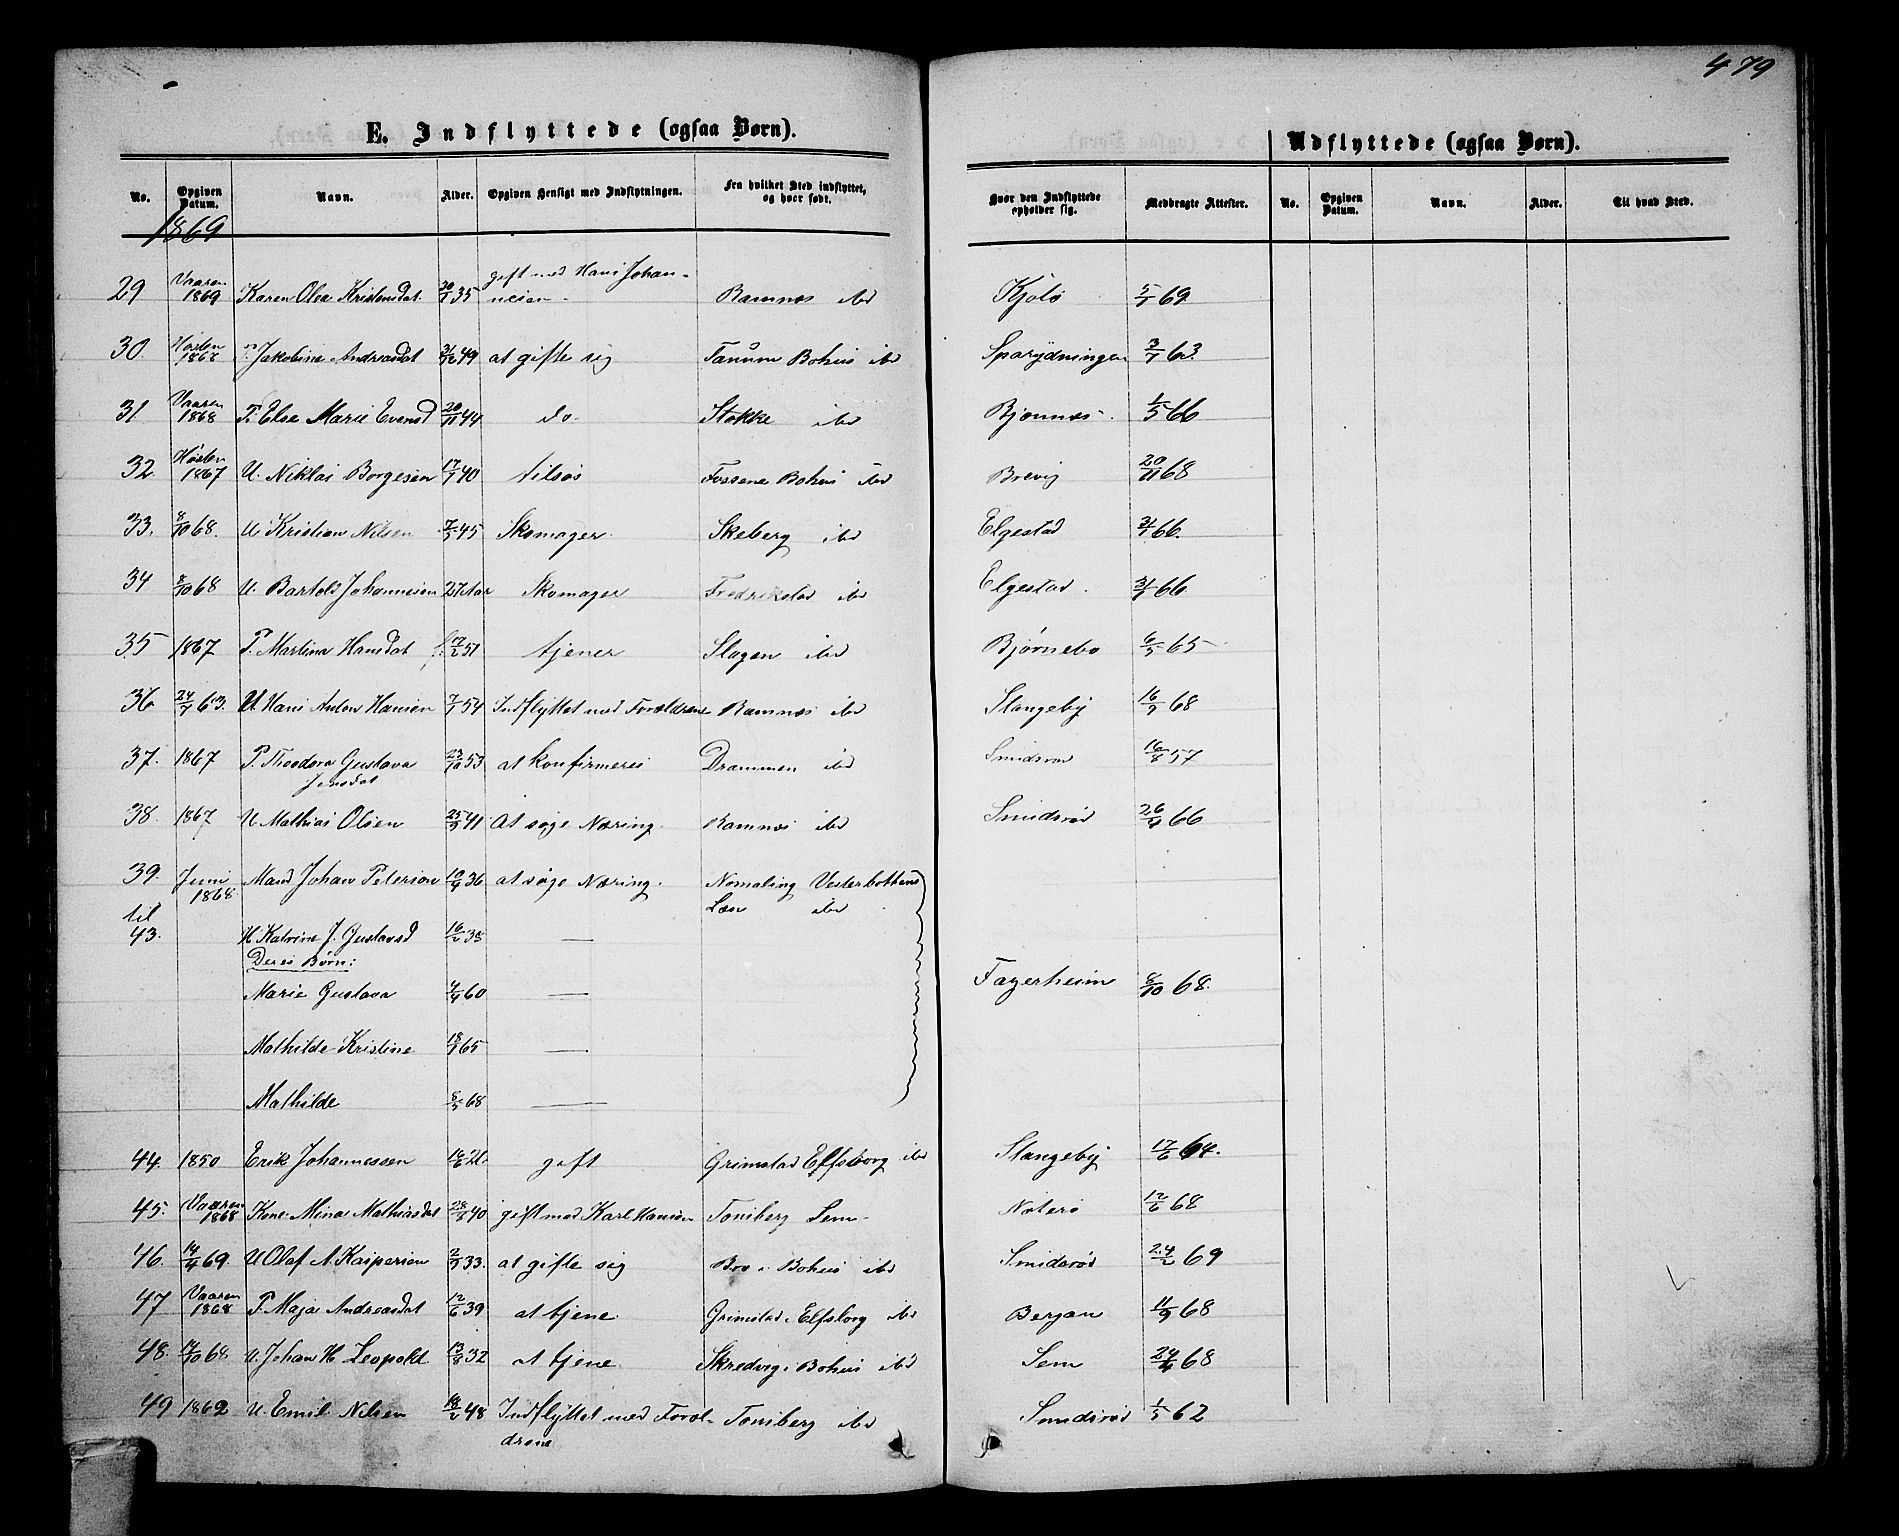 479
E. Indflyttede (ogsaa Børn).
Udflyttede (ogsaa Børn).
No. Opgiven Datum. Navn. Alder. Opgiven Hensigt med Indflytningen. Fra hvilket Sted indflyttet, og hvor født. Hvor den Indflyttede opholder sig. Medbragte Attester. No. Opgiven Datum. Navn. Alder. Til hvad Sted.
1869
29 Vaaren 1869 Karen Olea Kristensdat. 35 gift med Hans Johannesen Ramnæs ibd Kjølø 5/7 69
30. Høsten 1868 Jakobine Andreasdat 49 at gifte sig Tanum Bohus ibd Sparydningen 3/7 63.
31. Vaaren 1868 P. Else Marie Evensd 20/11 44 do Stokke ibd Bjønnæs 1/5 66
32 Høsten 1867 U. Niklas Borgesen 17/7 40 tilsøs Fossene Bohus ibd Brevig 20/11 68
33. 8/10 68. U Kristian Nilsen 7/5 45 Skomager Skeberg ibd Elgestad 66.
34 8/10 68 U. Bartold Johannesen 27 Aar Skomager Fredrikstad ibd Elgestad. 66
35 1867 P. Martina Hansdat 51 tjener Slagen ibd Bjørnebo 6/5 65
36 24/7 63. U. Hans Anton Hansen 7/7 54 Indflyttet med Forældrene Ramnæs ibd Slangeby 16/7 68
37. 1867 P. Theodora Gustava Jensdat 23/10 53 at konfirmeres Drammen ibd Smidsrød 57
38. 1867 U Mathias Olsen 25/5 41 at søge Næring. Ramnæs ibd Smidsrød 66
39. til 43. Juni 1868 Mand Johan Peterson 36 at søge Næring. Nomaling Vesterbottens Læn ibd
H Katrine J. Gustavsd 16/2 —
Deres Børn:
Marie Gustava 60 — Fagerheim 8/10 68.
Mathilde Kristine 65 —
Mathilde 8/5 68 —
44. 1850 Erik Johannessen gift Grimstad Elfsborg ibd Slangeby 17/6 64.
45. Vaaren 1868 Kone Mina Mathiasdat 40 gift med Karl Hansen Tønsberg Sem Nøterø 12/6 68
46. 14/4 69. U Olaf A. Kaspersen 33. at gifte sig Bro i Bohus ibd Smidsrød 24/2 69
47 Vaaren 1868 P. Maja Andreasdat 12/6 39 at tjene. Grimstad i Elfsborg ibd Bergan 11/9 68
48. 68 U. Johan H Leopold 13/8 32 at tjene. Skredvig i Bohus ibd Sem 68
49 1862 U. Emil Nilsen 48 Indflyttet med Forældrene Tønsberg ibd Smidsrød 1/5 62